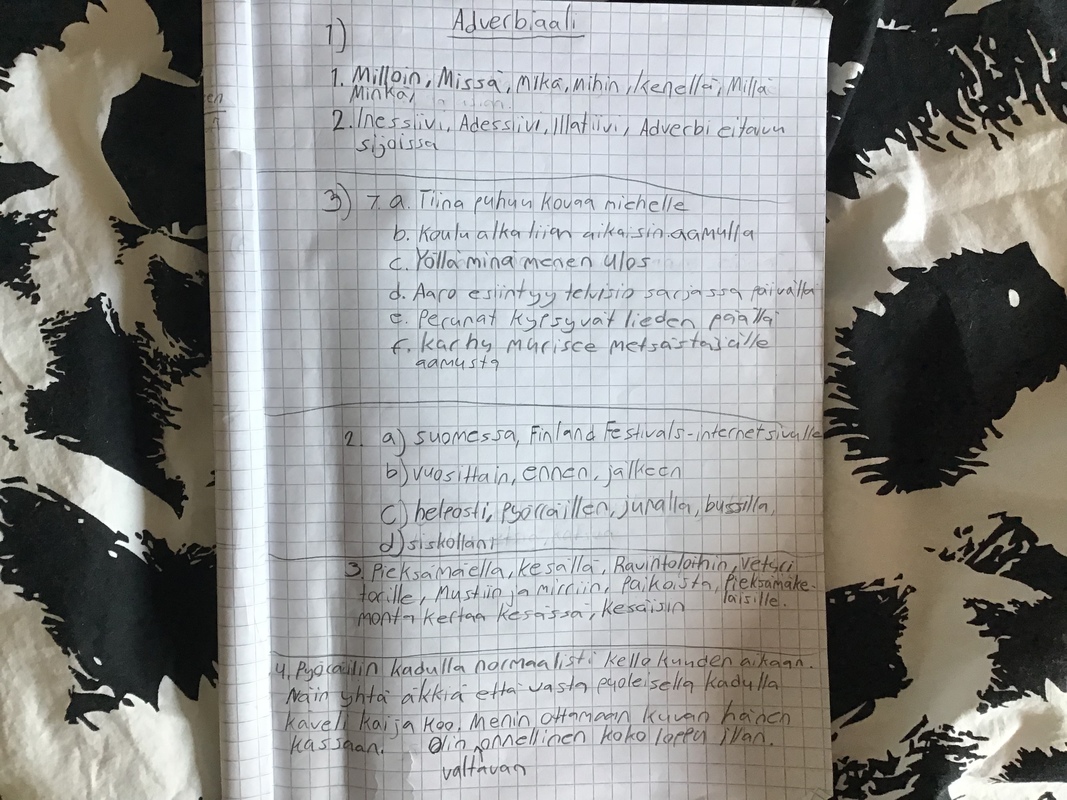 Adverbiaali
1)
1. Milloin, Missä, Mikä, mihin, kenellä, Millä
Minkä,
2. Inessiivi, Adessiivi, Illatiivi, Adverbi ei taivu
sijoissa
3) 7. a. Tiina puhuu kovaa michelle
b. Koulu alkaa liian aikaisin aamulla
c. Yöllä minä menen ulos
d. Aaro esiintyy telvisio sarjassa päivällä
e. Perunat kypsyvät lieden päällä
f. Karhu murisee metsästäjälle
aamusta
2. a) suomessa, Finland Festivals-internetsivulle
b) vuosittain, ennen, jälkeen
c) helposti, pyöräillen, junalla, bussilla,
d) siskollani
3. Pieksämäellä, kesällä, Ravintoloihin, Veturi
torille, Mustiin ja mirriin, Paikoista, Pieksämäke-
läisille.
monta kertaa kesässä, kesäisin
4. Pyöräilin kadulla normaalisti kello kuuden aikaan.
Näin yhtä äkkiä että vasta pyoleisellä kadulla
käveli kaija koo. Menin ottamaan kuvan hänen
kassaan. Olin onnellinen koko loppu illan.
valtavan